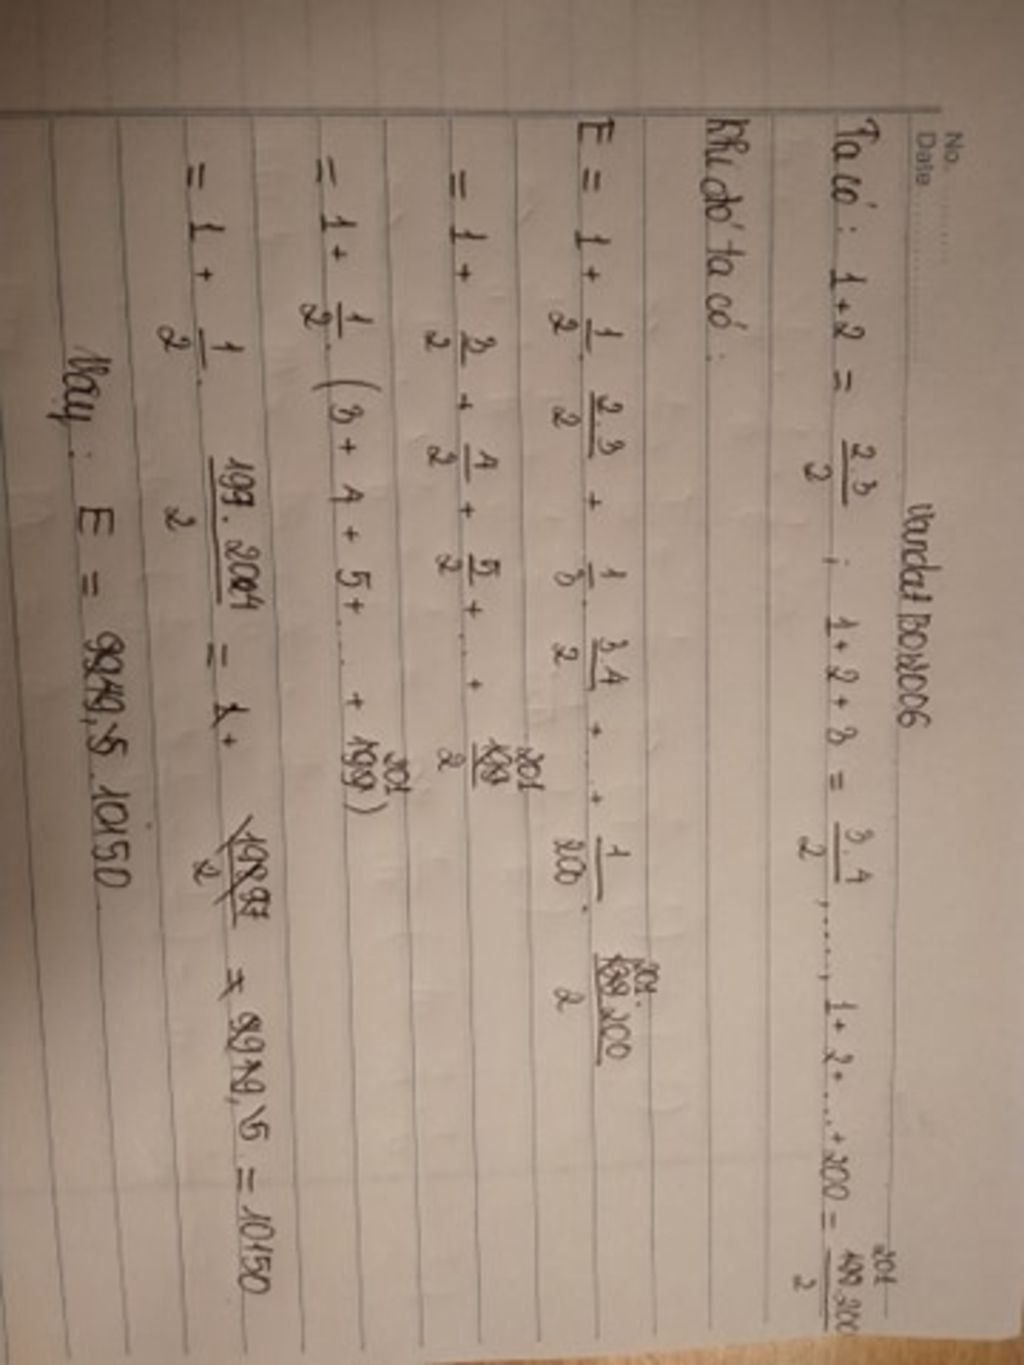 No.
Date
Vandat BO2006
Ta có : 1 + 2 = 2.3/2 ; 1 + 2 + 3 = 3.4/2 , ......, 1 + 2 + .... + 200 = 201 199.200/2
Khi đó ta có :
E = 1 + 1/2 . 2.3/2 + 1/3 . 3.4/2 + ... + 1/200 . 201. 199.200/2
= 1 + 3/2 + 4/2 + 5/2 + .... + 201 199/2
= 1 + 1/2 . (3 + 4 + 5 + .... + 201 199)
= 1 + 1/2 . 199.204/2 = 1 + = 9949,5 = 10150
Vậy : E = 9949,5 10150